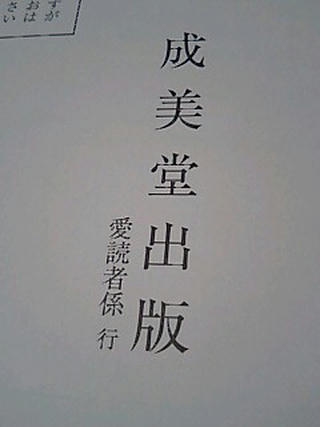 すが
おは
さい
成美堂出版
愛読者係 行